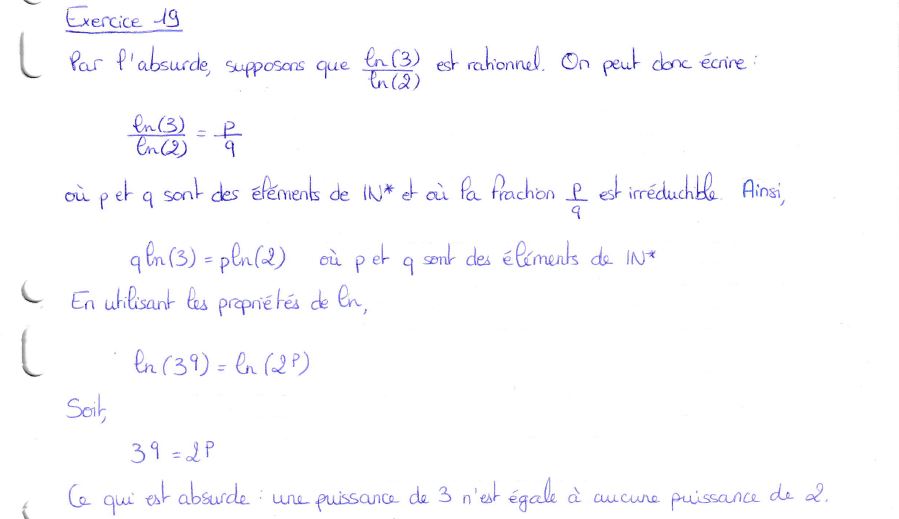 Exercice 19
Par l'absurde, supposons que ln(3)/ln(2) est rationnel. On peut donc écrire :
ln(3)/ln(2) = p/q
où p et q sont des éléments de IN* et où la fraction p/q est irréductible. Ainsi,
q ln(3) = p ln(2) où p et q sont des éléments de IN*
En utilisant les propriétés de ln,
ln(3^q) = ln(2^p)
Soit,
3^q = 2^p
Ce qui est absurde : une puissance de 3 n'est égale à aucune puissance de 2.